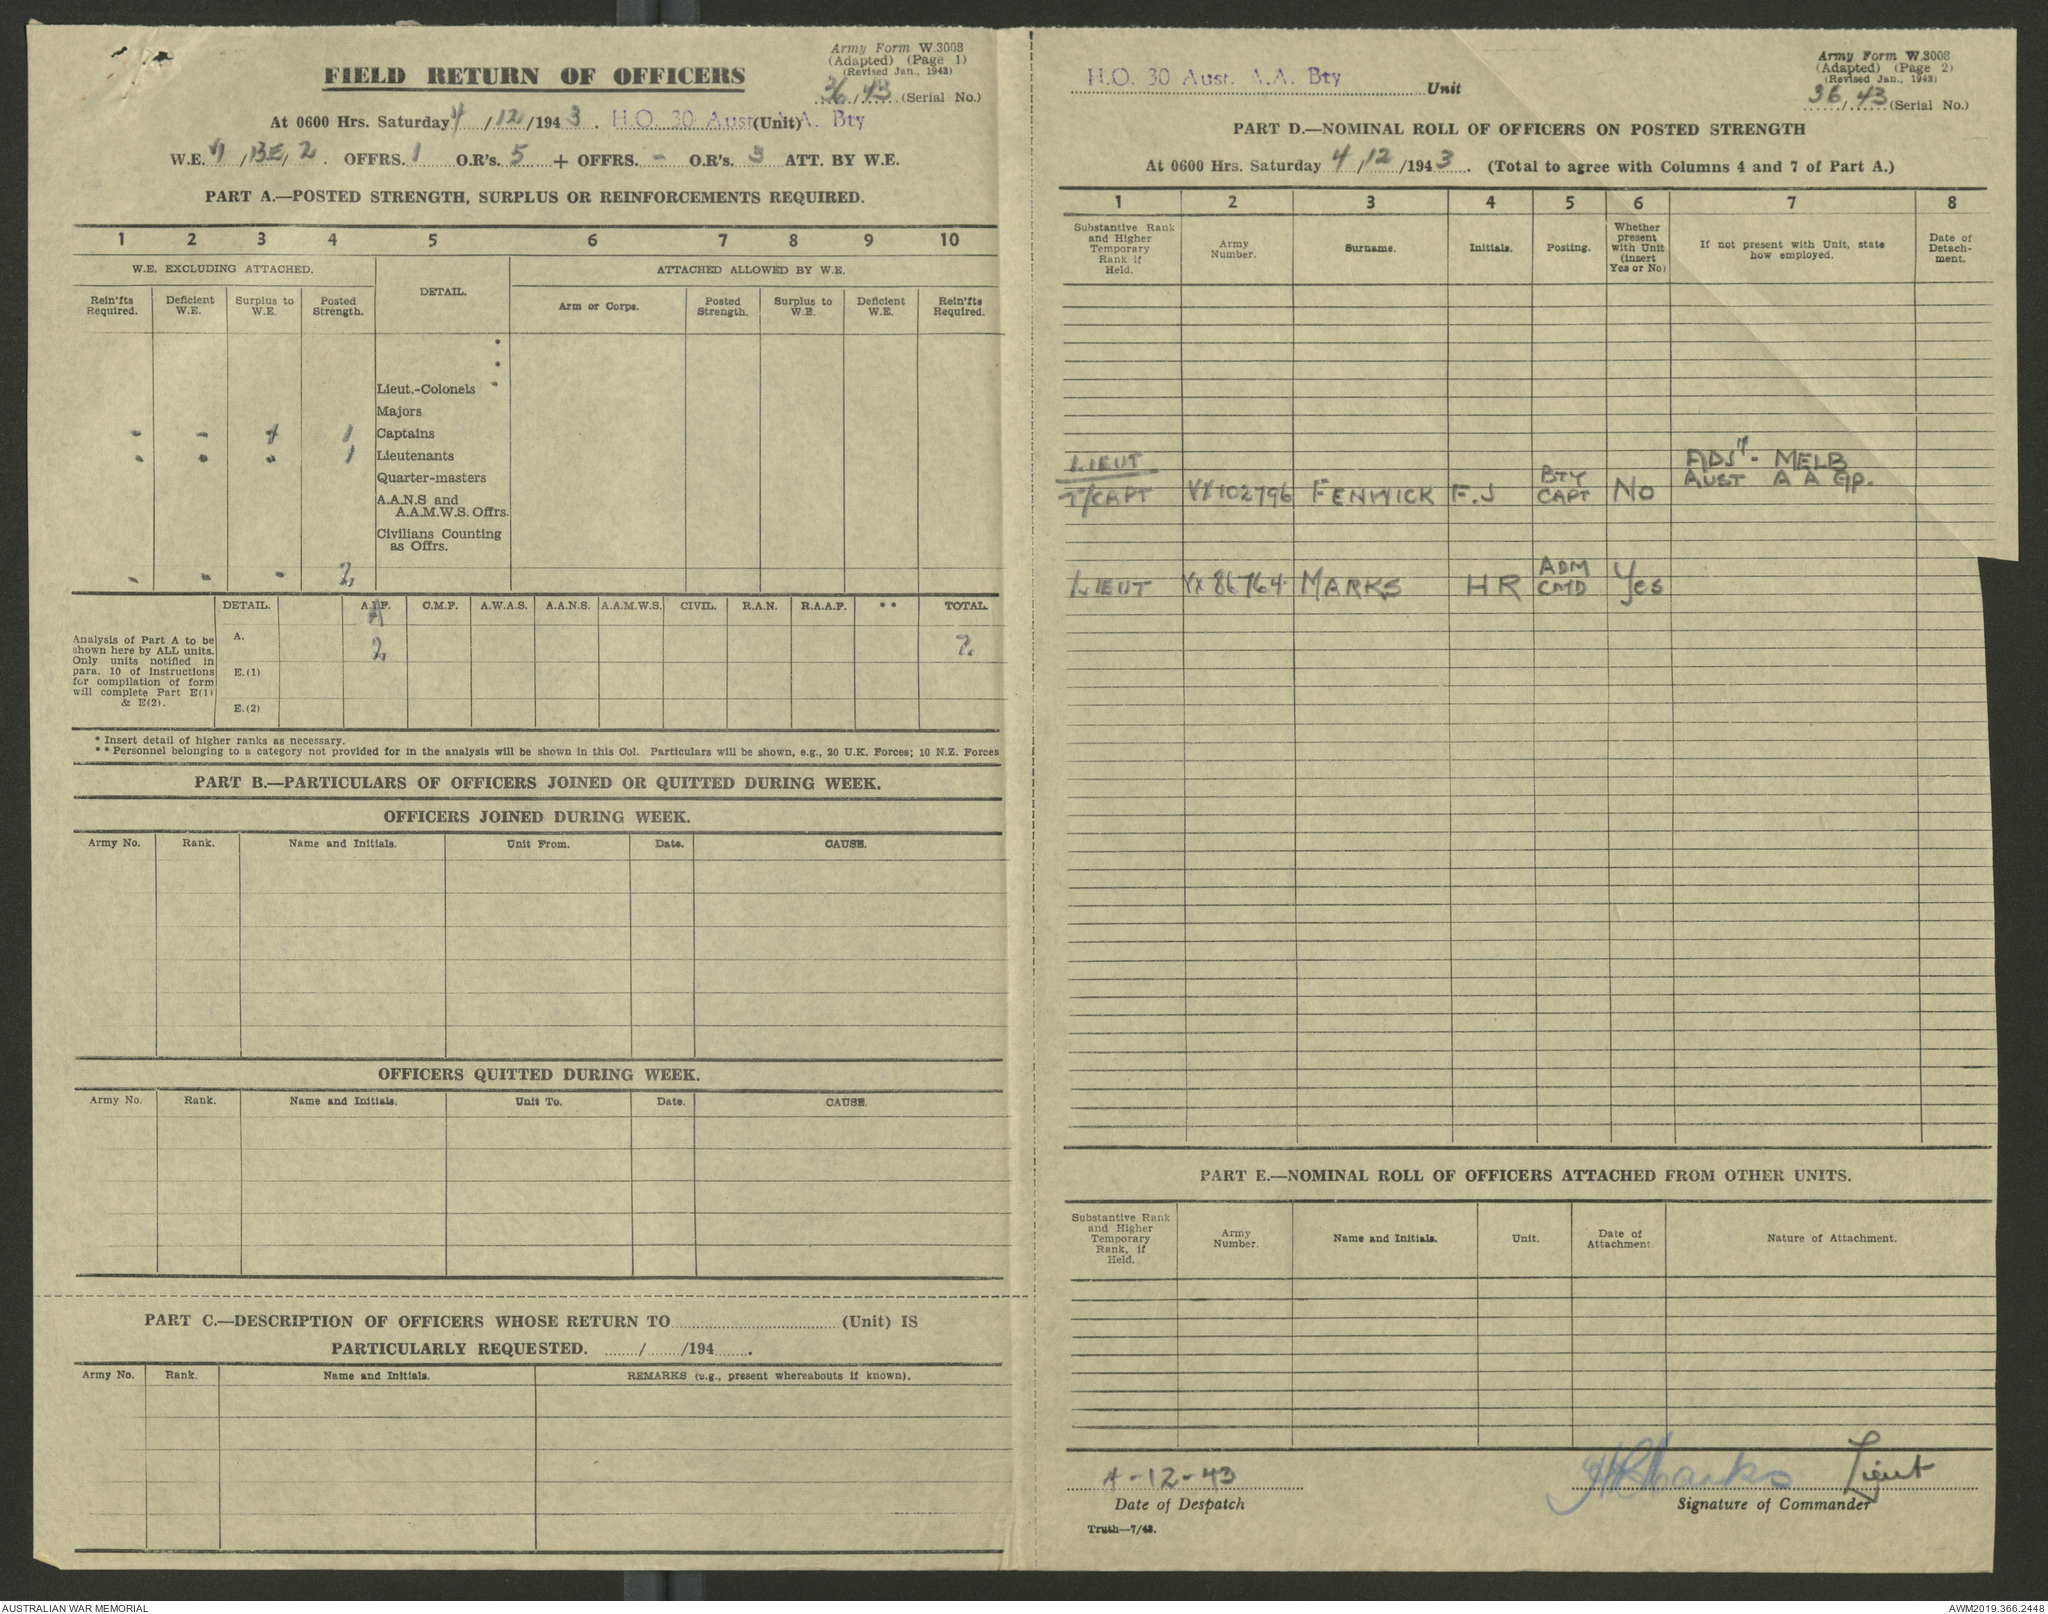 Army Form W.3008
(Adapted) (Page 1)
(Revised Jan., 1943)
36/43 (Serial No.)
FIELD RETURN OF OFFICERS
At 0600 Hrs. Saturday 4/12/1943. H.Q. 30 Aust. A.A. Bty (Unit)
W.E. VI/13E/2. OFFRS. 1 O.R's. 5 + OFFRS. - O.R's. 3 ATT. BY W.E.
PART A.—POSTED STRENGTH, SURPLUS OR REINFORCEMENTS REQUIRED.
1 2 3 4 5 6 7 8 9 10
W.E. EXCLUDING ATTACHED. DETAIL. ATTACHED ALLOWED BY W.E.
Rein'fts Required. Deficient W.E. Surplus to W.E. Posted Strength. Arm or Corps. Posted Strength. Surplus to W.E. Deficient W.E. Rein'fts Required.
*
*
Lieut.-Colonels *
Majors
- - 1 Captains
- - - 1 Lieutenants
Quarter-masters
A.A.N.S and
A.A.M.W.S. Offrs.
Civilians Counting
as Offrs.
- - - 2
DETAIL. A.I.F. C.M.F. A.W.A.S. A.A.N.S. A.A.M.W.S. CIVIL. R.A.N. R.A.A.F. ** TOTAL.
Analysis of Part A to be
shown here by ALL units.
Only units notified in
para. 10 of instructions
for compilation of form
will complete Part E(1)
& E(2).
A. 2 2
E.(1)
E.(2)
* Insert detail of higher ranks as necessary.
** Personnel belonging to a category not provided for in the analysis will be shown in this Col. Particulars will be shown, e.g., 20 U.K. Forces; 10 N.Z. Forces
PART B.—PARTICULARS OF OFFICERS JOINED OR QUITTED DURING WEEK.
OFFICERS JOINED DURING WEEK.
Army No. Rank. Name and Initials. Unit From. Date. CAUSE.
OFFICERS QUITTED DURING WEEK.
Army No. Rank. Name and Initials. Unit To. Date. CAUSE.
PART C.—DESCRIPTION OF OFFICERS WHOSE RETURN TO (Unit) IS
PARTICULARLY REQUESTED. / /194 .
Army No. Rank. Name and Initials. REMARKS (e.g., present whereabouts if known).
Army Form W.3008
(Adapted) (Page 2)
(Revised Jan., 1943)
36/43 (Serial No.)
H.Q. 30 Aust. A.A. Bty Unit
PART D.—NOMINAL ROLL OF OFFICERS ON POSTED STRENGTH
At 0600 Hrs. Saturday 4/12/1943. (Total to agree with Columns 4 and 7 of Part A.)
1 2 3 4 5 6 7 8
Substantive Rank and Higher Temporary Rank if Held. Army Number. Surname. Initials. Posting. Whether present with Unit (insert Yes or No) If not present with Unit, state how employed. Date of Detachment.
LIEUT ADJT - MELB
T/CAPT VX102796 FENWICK F.J BTY CAPT No AUST A A Gp.
LIEUT VX86764 MARKS H R ADM CMD Yes
PART E.—NOMINAL ROLL OF OFFICERS ATTACHED FROM OTHER UNITS.
Substantive Rank and Higher Temporary Rank, if Held. Army Number. Name and Initials. Unit. Date of Attachment. Nature of Attachment.
4-12-43 HRMarks Lieut
Date of Despatch Signature of Commander
Truth—7/43.
AUSTRALIAN WAR MEMORIAL
AWM2019.366.2448